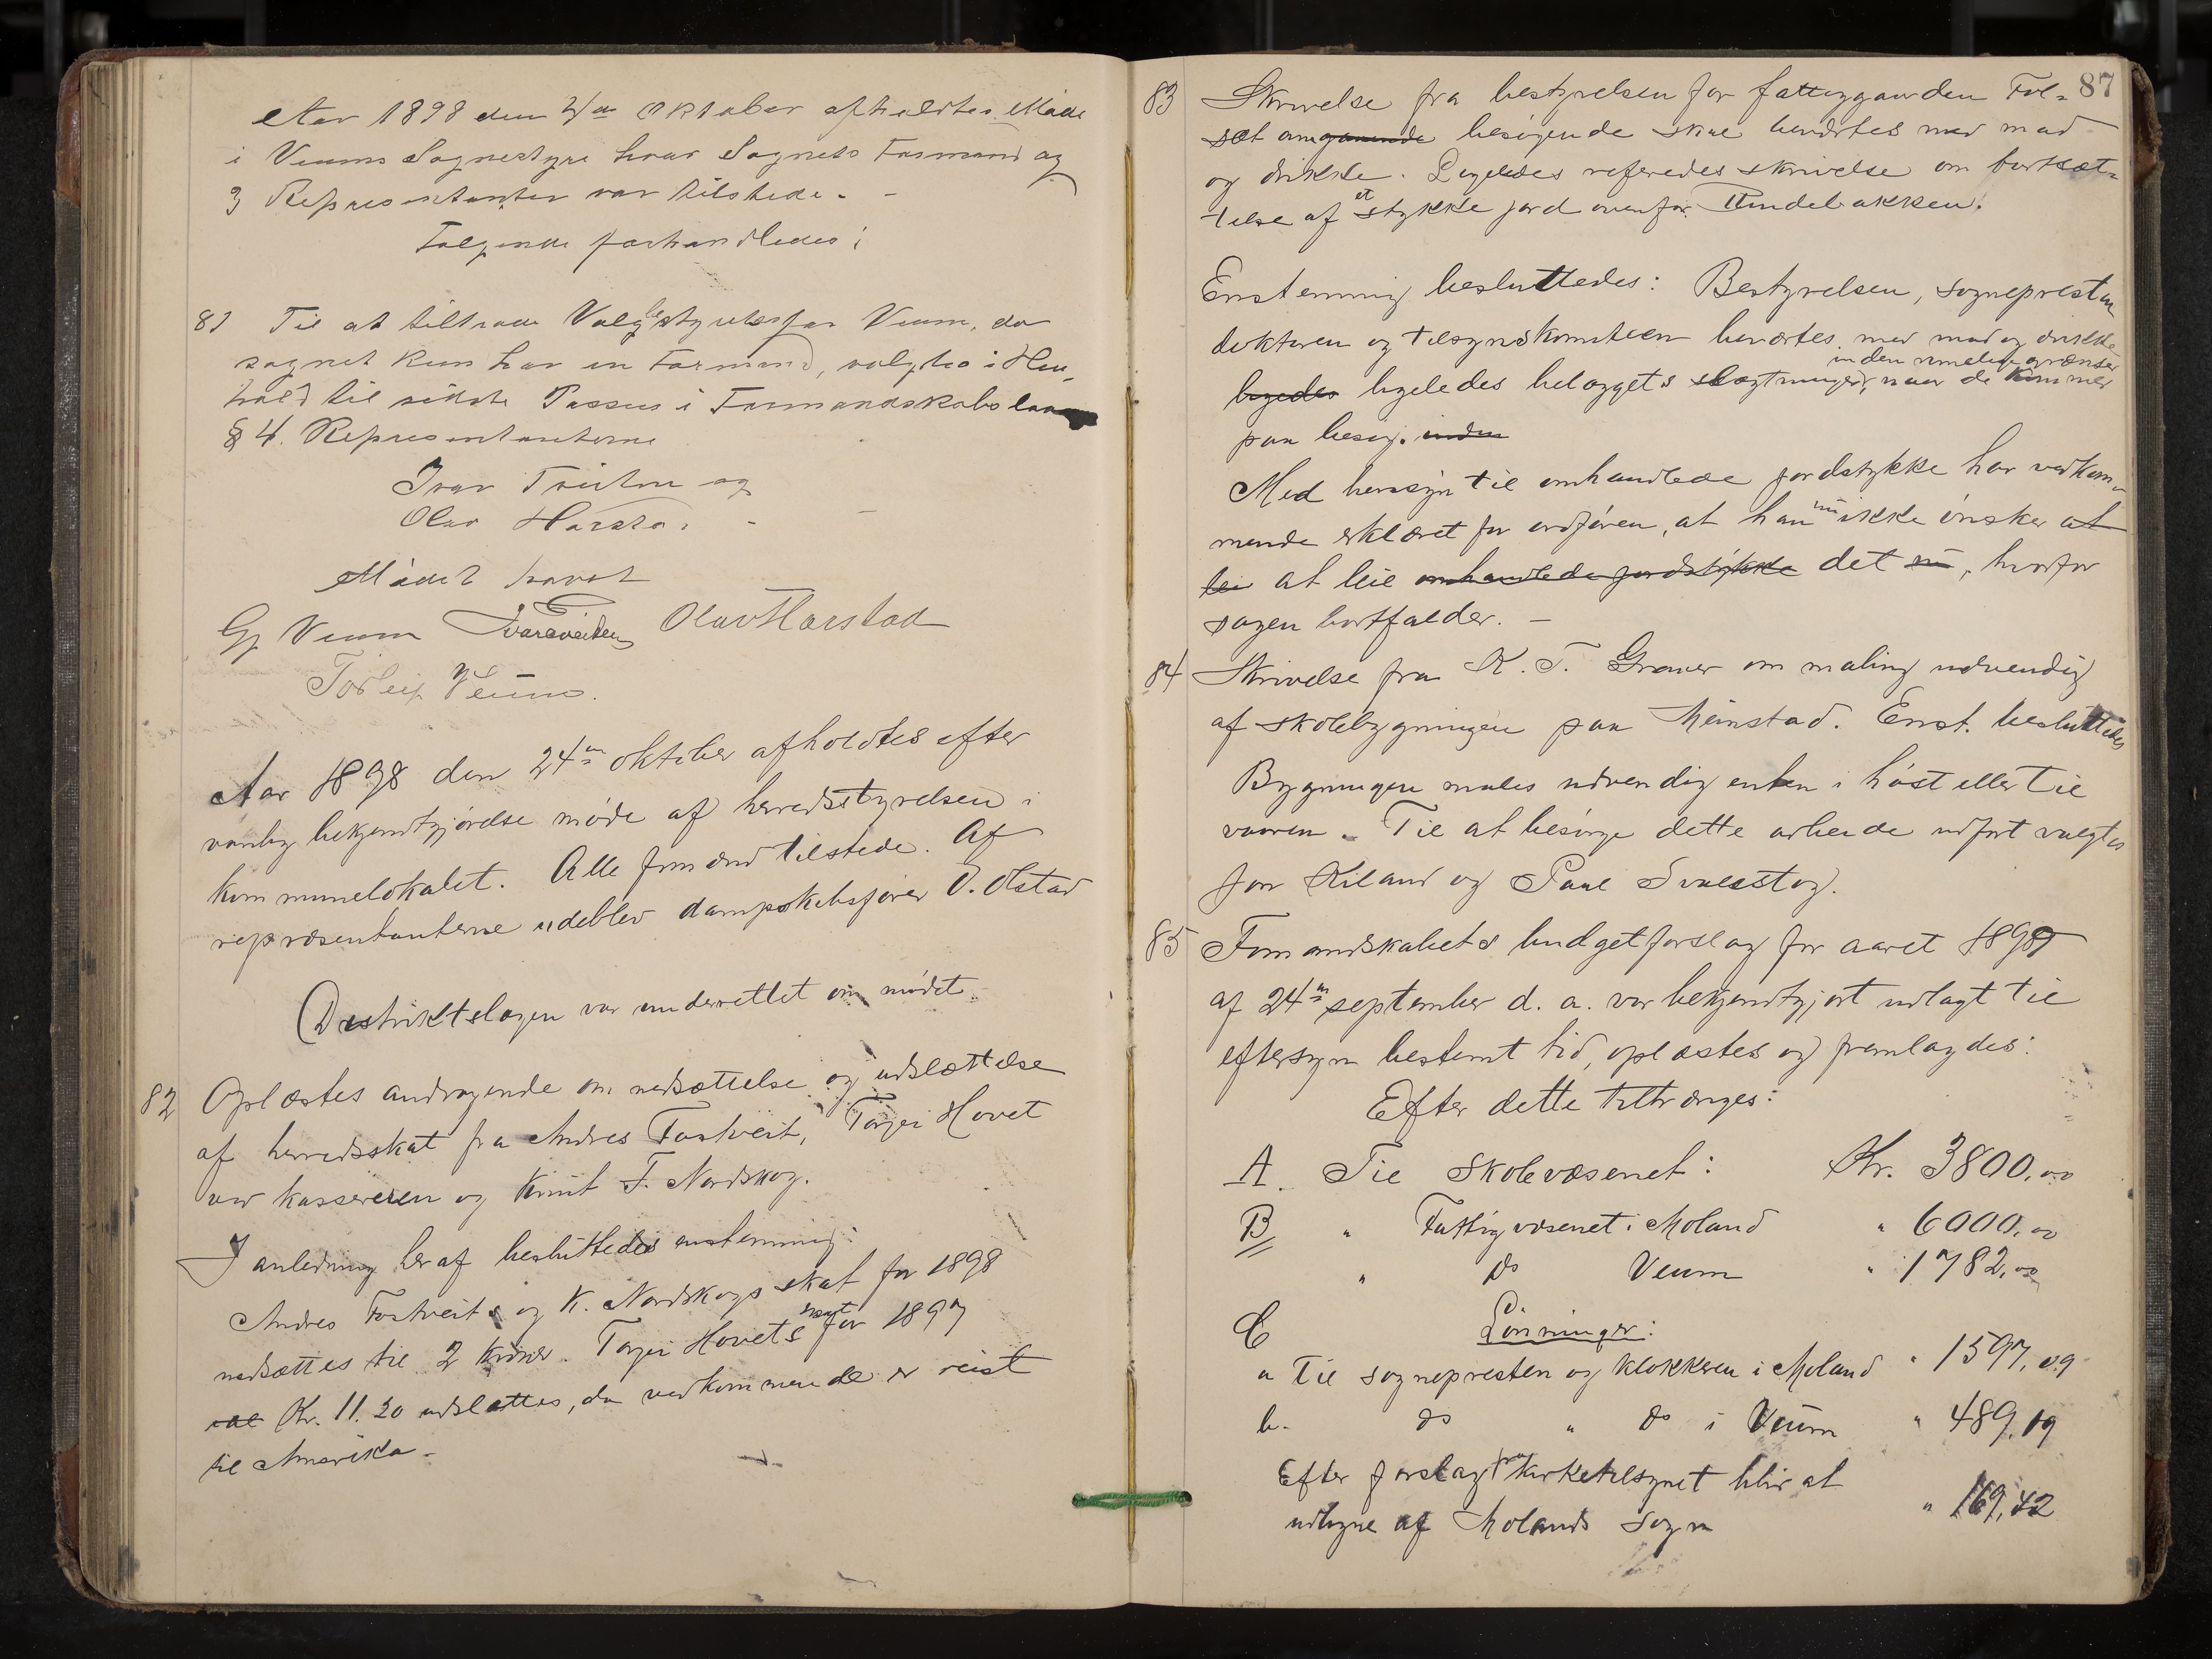 Aar 1898 den 2/10 Oktober afholdtes Møde
i Veums Sognestyre hvor Sognets Formand og
3 Representanter var tilstede. -
Følgende forhandledes:
81 Til at tiltræde Valgbestyrelsen for Veum, da
sognet kun har en Formand, valgtes i Hen-
hold til sidste Passus i Formandskabslovens
§ 4. Representanterne
Ivar Tveiten og
Olav Harsta. -
Mødet hævet
G. Veum Ivar Tveiten Olav Harstad
Torleif Veum.
Aar 1898 den 24de oktober afholdtes efter
vanlig bekjendtgjørelse møde af herredsstyrelsen i
kommunelokalet. Alle formænd tilstede. Af
repræsentanterne udeblev dampskibsfører O. Olstad
Distriktslægen var underrettet om mødet.
82 Oplæstes andragende om nedsættelse og udslettelse
af herredsskat fra Andres Fostveit, Torjei Hovet
ved kassereren og Knut T. Nordskog.
I anledning heraf besluttedes enstemmig:
Andres Fostveits og K. Nordskogs skat for 1898
nedsættes til 2 kroner. Torjei Hovets skat for 1897
Kr. 11.20 udslettes, da vedkommende er reist
til Amerika -
87
83 Skrivelse fra bestyrelsen for fattiggaarden Fol-
sæt om besøgende skal bevertes med mad
og drikke. Ligeledes referedes skrivelse om bortsæt-
telse af et stykke jord ovenfor Tindebakken.
Enstemmig besluttedes: Bestyrelsen, sognepresten
doktoren og tilsynskomiteen bevertes med mad og drikke
inden rimelige grænser
ligedes ligeledes belæggets slægtninger, naar de kommer
paa besøg. inden
Med hensyn til omhandlede jordstykke har vedkom-
mende erklæret for ordføren, at han nu ikke ønsker at
leie at leie omhandlede jordstykke det nu, hvorfor
sagen bortfalder. -
84 Skrivelse fra K. T. Graver om maling udvendig
af skolebygningen paa Meinstad. Enst. besluttedes
Bygningen males udvendig enten i høst eller til
vaaren. Til at besørge dette arbeide udført valgtes
Jon Kiland og Paul Svalestog.
85 Formandskabets budgetforslag for aaret 1899
af 24de september d. a. var bekjendtgjort udlagt til
eftersyn bestemt tid, oplæstes og fremlagdes:
Efter dette tiltrænges:
A. Til Skolevæsenet: Kr. 3800,00
B " Fattigvæsenet i Moland " 6000,00
" do Veum " 1782,00
C Lønninger:
a Til sognepresten og klokkeren i Moland " 1597,09
b. do " do i Veum " 489,19
Efter forslag fra kirketilsynet blir at
udligne af Molands Sogn " 169,42